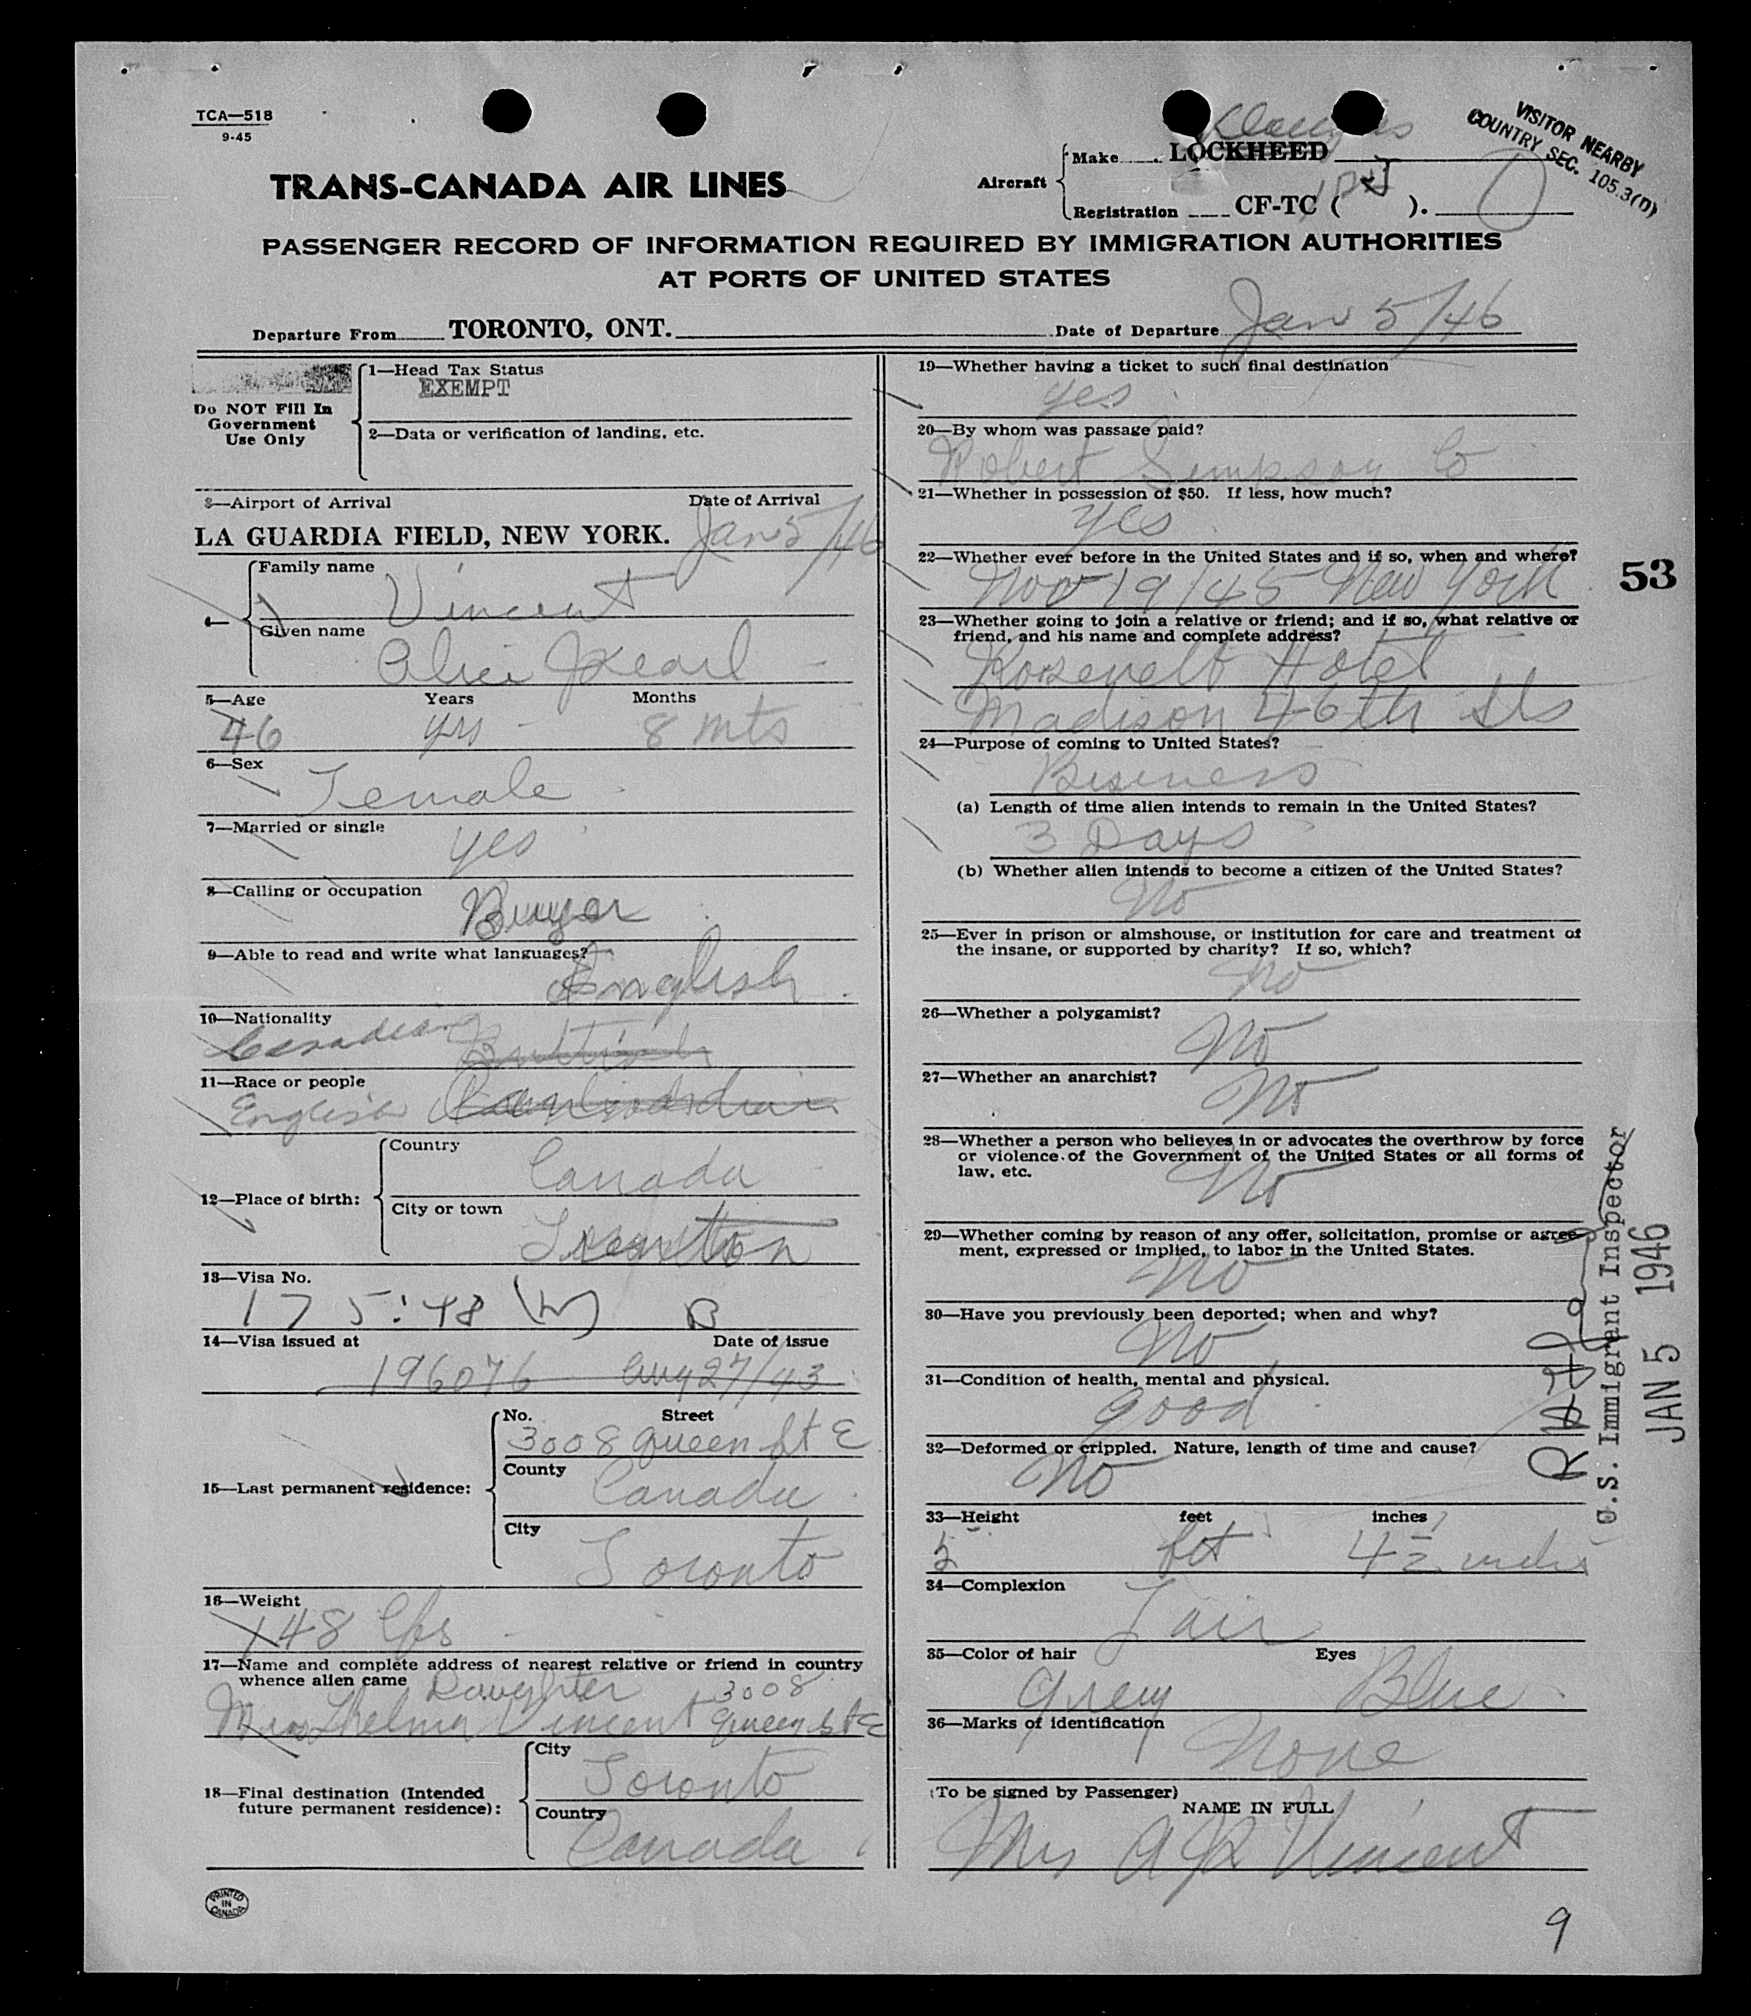 TCA—518
9-45
VISITOR NEARBY
COUNTRY SEC. 105.3(n)
Aircraft
Make LOCKHEED
Registration CF-TC ( ).
TRANS-CANADA AIR LINES
PASSENGER RECORD OF INFORMATION REQUIRED BY IMMIGRATION AUTHORITIES
AT PORTS OF UNITED STATES
Departure From TORONTO, ONT. Date of Departure Jan 5/46
Do NOT Fill In
Government
Use Only
1—Head Tax Status
EXEMPT
2—Data or verification of landing, etc.
3—Airport of Arrival Date of Arrival
LA GUARDIA FIELD, NEW YORK. Jan 5/46
4—
Family name
Vincent
Given name
Alice Pearl
5—Age Years Months
46 yrs 8 mts
6—Sex
Female
7—Married or single
yes
8—Calling or occupation
Buyer
9—Able to read and write what languages?
English
10—Nationality
Canadian British
11—Race or people
English
12—Place of birth:
Country
Canada
City or town
13—Visa No.
175:48 B
14—Visa issued at Date of issue
196076 Aug 27/43
15—Last permanent residence:
No. Street
3008 Queen St E
County
Canada
City
Toronto
16—Weight
148 lbs
17—Name and complete address of nearest relative or friend in country
whence alien came Daughter 3008
Thelma Vincent Queen St E
18—Final destination (Intended
future permanent residence):
City
Toronto
Country
Canada
PRINTED
IN
CANADA
19—Whether having a ticket to such final destination
yes
20—By whom was passage paid?
Robert Simpson Co
21—Whether in possession of $50. If less, how much?
yes
22—Whether ever before in the United States and if so, when and where?
Nov 19/45 New York
23—Whether going to join a relative or friend; and if so, what relative or
friend, and his name and complete address?
Rosevelt Hotel
Madison 46th Sts
24—Purpose of coming to United States?
Business
(a) Length of time alien intends to remain in the United States?
3 Days
(b) Whether alien intends to become a citizen of the United States?
No
25—Ever in prison or almshouse, or institution for care and treatment of
the insane, or supported by charity? If so, which?
No
26—Whether a polygamist?
No
27—Whether an anarchist?
No
28—Whether a person who believes in or advocates the overthrow by force
or violence of the Government of the United States or all forms of
law, etc.
No
29—Whether coming by reason of any offer, solicitation, promise or agree-
ment, expressed or implied, to labor in the United States.
No
30—Have you previously been deported; when and why?
No
31—Condition of health, mental and physical.
good
32—Deformed or crippled. Nature, length of time and cause?
No
33—Height feet inches
5 4½
34—Complexion
Fair
35—Color of hair Eyes
Grey Blue
36—Marks of identification
None
(To be signed by Passenger)
NAME IN FULL
Mrs A P Vincent
53
U.S. Immigrant Inspector
JAN 5 1946
9